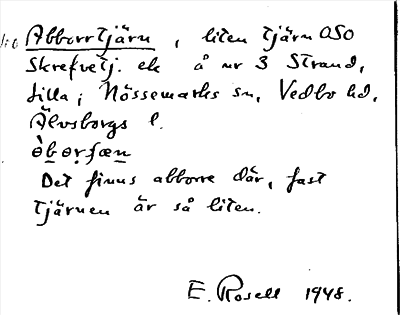 Abborrtjärn, liten tjärn OSO
Skrefvetj. ek å nr 3 Strand,
Lilla; Nössemarks sn, Vedbo hd,
Älvsborgs l.
Det finns abborre där, fast
tjärnen är så liten.
E. Rosell 1948.